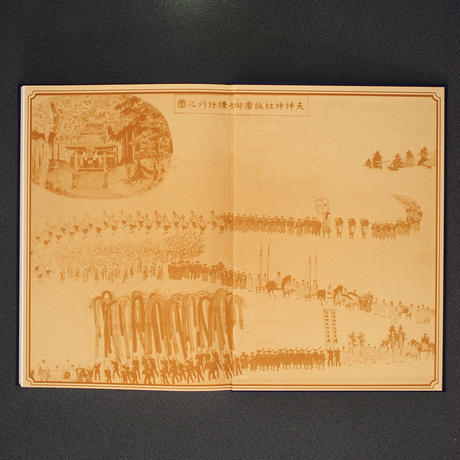 天神神社祇園御行列之圖